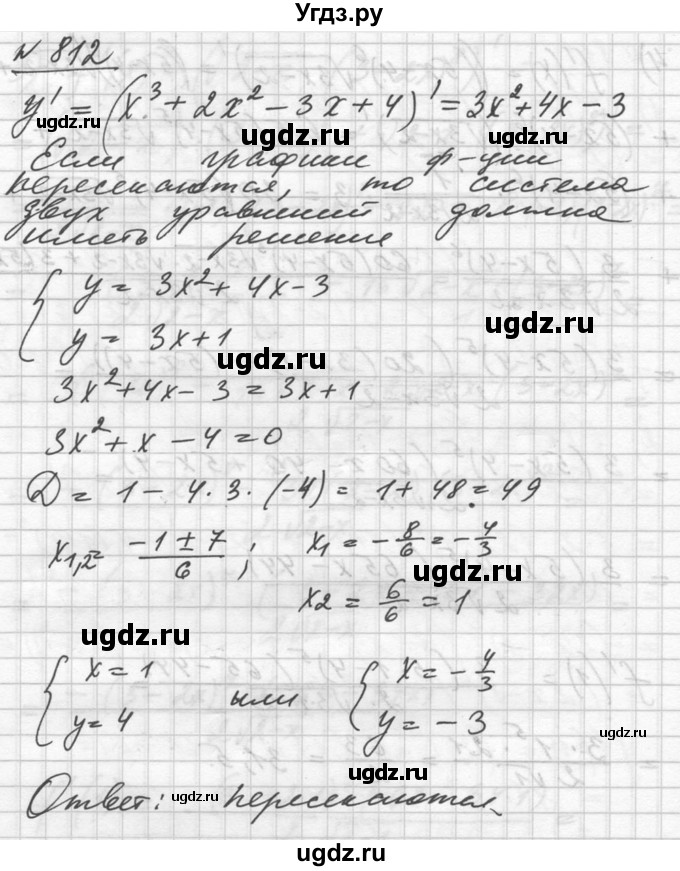 Угдз.ру
N 812
y' = (x³ + 2x² - 3x + 4)' = 3x² + 4x - 3
ugdz.ru ugdz.ru ugdz.ru
Если графики ф-ции
пересекаются, то система
ugdz.ru ugdz.ru
двух уравнений должна
иметь решение
{ y = 3x² + 4x - 3
ugdz.ru
y = 3x + 1
ugdz.ru
3x² + 4x - 3 = 3x + 1
3x² + x - 4 = 0
D = 1 - 4 · 3 · (-4) = 1 + 48 = 49
x1,2 = (-1 ± 7)/6 ; x1 = -8/6 = -4/3
ugdz.ru
x2 = 6/6 = 1
ugdz.ru
{ x = 1 или { x = -4/3
y = 4 y = -3
ugdz.ru
ugdz.ru
Ответ: ugdz.ru пересекаются.
ugdz.ru